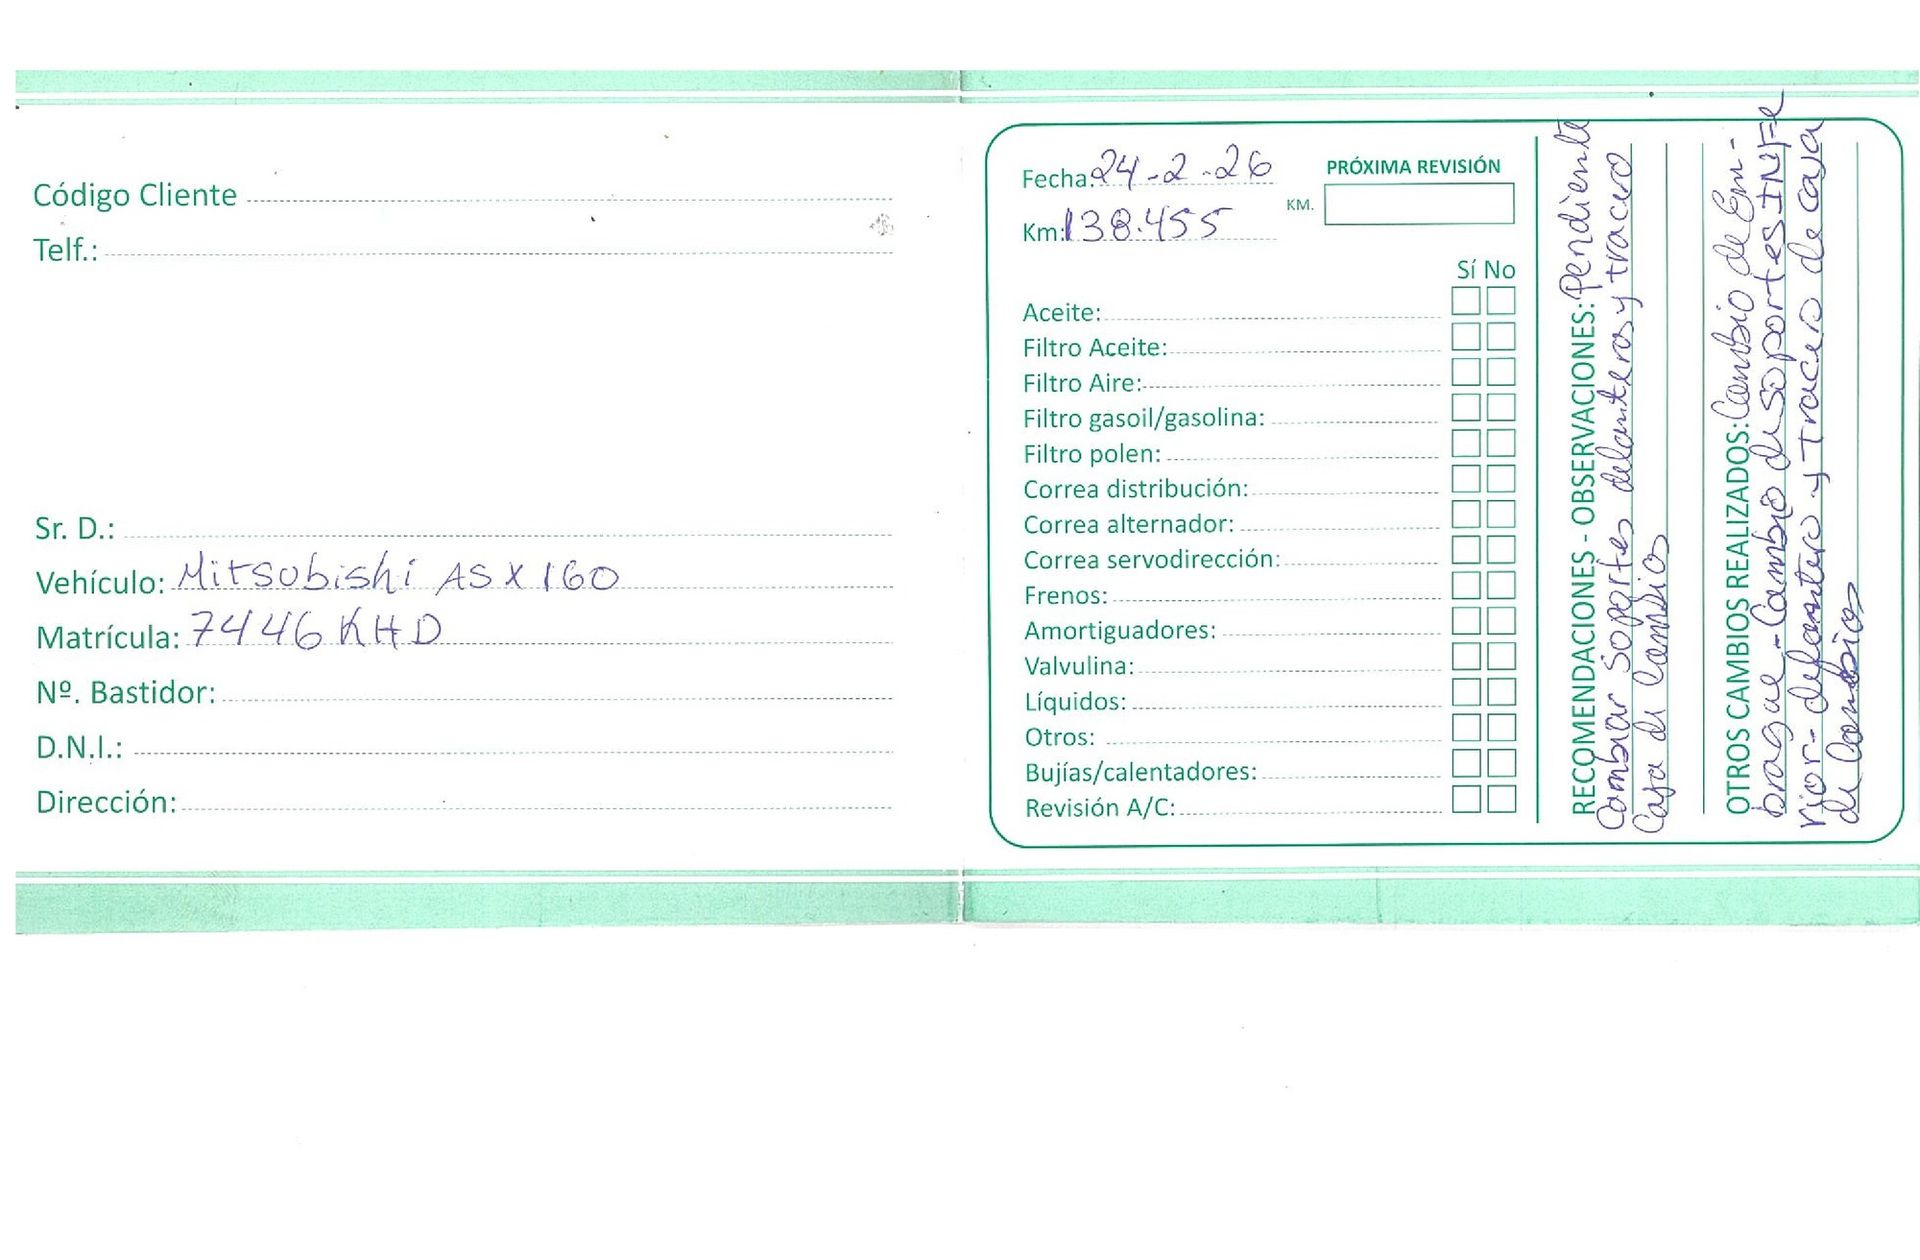 Código Cliente
Telf.:
Sr. D.:
Vehículo: Mitsubishi ASX 160
Matrícula: 7446 KHD
Nº. Bastidor:
D.N.I.:
Dirección:
Fecha: 24-2-26
Km: 138.455
PRÓXIMA REVISIÓN
KM.
Sí No
Aceite:
Filtro Aceite:
Filtro Aire:
Filtro gasoil/gasolina:
Filtro polen:
Correa distribución:
Correa alternador:
Correa servodirección:
Frenos:
Amortiguadores:
Valvulina:
Líquidos:
Otros:
Bujías/calentadores:
Revisión A/C:
RECOMENDACIONES - OBSERVACIONES: Pendiente
Cambiar soportes delanteros y tracero
Caja de Cambios
OTROS CAMBIOS REALIZADOS: Cambio de Em-
brague - Cambio de soportes INFe
rior - delantero y tracero de caja
de Cambios